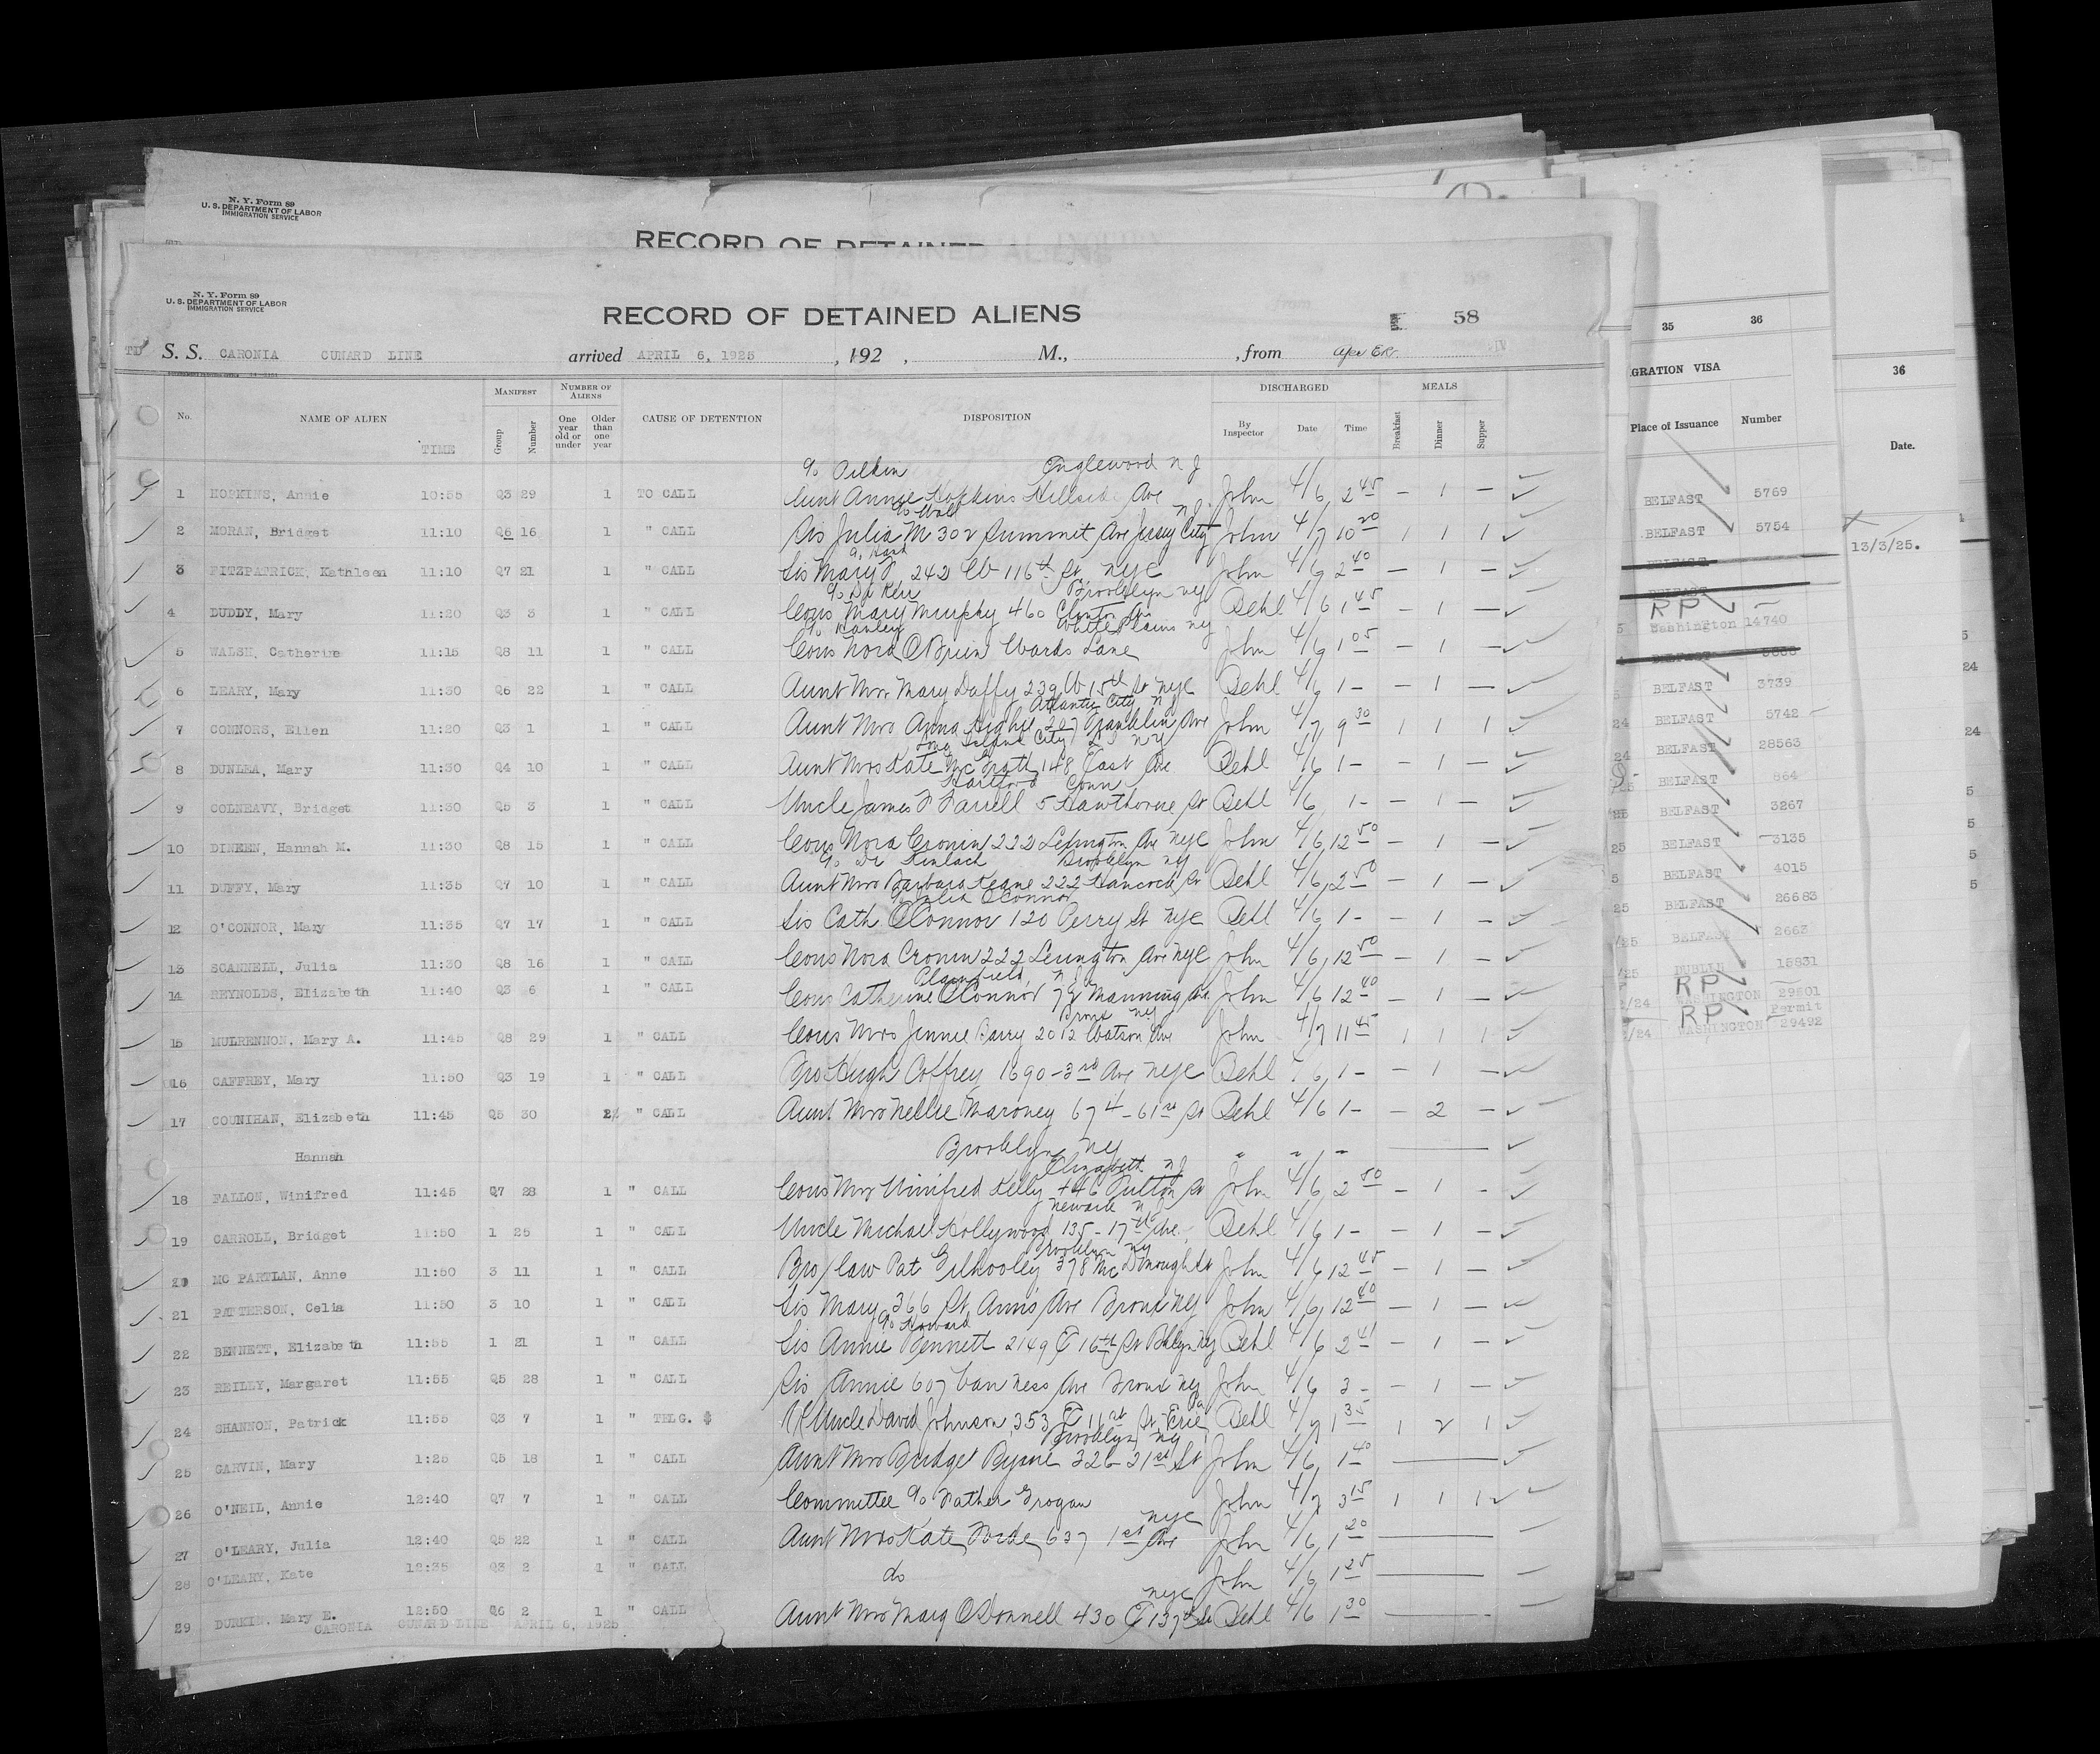 N. Y. Form 89
U. S. DEPARTMENT OF LABOR
IMMIGRATION SERVICE
RECORD OF DETAINED ALIENS
N. Y. Form 89
U. S. DEPARTMENT OF LABOR
IMMIGRATION SERVICE
RECORD OF DETAINED ALIENS
58
S. S. CARONIA CUNARD LINE arrived APRIL 6, 1925 , 192 , M., , from
No. NAME OF ALIEN TIME MANIFEST Group Number NUMBER OF ALIENS One year old or under Older than one year CAUSE OF DETENTION DISPOSITION DISCHARGED By Inspector Date Time MEALS Breakfast Dinner Supper
Englewood N J
1 HOPKINS, Annie 10:55 Q3 29 1 TO CALL Aunt Annie Hopkins Hillside Ave John 4/6 2 45 — 1 —
N.J.
2 MORAN, Bridget 11:10 Q6 16 1 " CALL Sis Julia M 302 Summit Ave Jersey City John 4/7 10 20 1 1 1
3 FITZPATRICK, Kathleen 11:10 Q7 21 1 " CALL Sis Mary F. 242 W 116th St. NYC John 4/6 2 40 — 1 —
c/o Dr Kerr Brooklyn NY
4 DUDDY, Mary 11:20 Q3 3 1 " CALL Cous Mary Murphy 460 Clinton Ave Behl 4/6 1 45 — 1 —
c/o Hanley White Plains NY
5 WALSH, Catherine 11:15 Q8 11 1 " CALL Cous Nora O'Brien Wards Lane John 4/6 1 05 — 1 —
6 LEARY, Mary 11:30 Q6 22 1 " CALL Aunt Mrs Mary Duffy 239 W 15th St NYC Behl 4/6 1 — — 1 —
Atlantic City N J
7 CONNORS, Ellen 11:20 Q3 1 1 " CALL Aunt Mrs Anna 207 Franklin Ave John 4/7 9 30 1 1 1
Long Island City L I NY
8 DUNLEA, Mary 11:30 Q4 10 1 " CALL Aunt Mrs Kate McGrath 148 East Ave Behl 4/6 1 — — 1 —
Hartford Conn
9 COLNEAVY, Bridget 11:30 Q5 3 1 " CALL Uncle James F Farrell 5 Hawthorne St Behl 4/6 1 — — 1 —
10 DINEEN, Hannah M. 11:30 Q8 15 1 " CALL Cous Nora Cronin 222 Lexington Ave NYC John 4/6 12 50 — 1 —
c/o Dr Kinlach Brooklyn NY
11 DUFFY, Mary 11:35 Q7 10 1 " CALL Aunt Mrs Barbara Keane 222 Hancock St Behl 4/6 2 50 — 1 —
c/o Julia O'Connor
12 O'CONNOR, Mary 11:35 Q7 17 1 " CALL Sis Cath O'Connor 120 Perry St NYC Behl 4/6 1 — — 1 —
13 SCANNELL, Julia 11:30 Q8 16 1 " CALL Cous Nora Cronin 222 Lexington Ave NYC John 4/6 12 50 — 1 —
Plainfield, N J
14 REYNOLDS, Elizabeth 11:40 Q3 6 1 " CALL Cous Catherine O'Connor 72 Manning Ave John 4/6 12 40 — 1 —
Bronx NY
15 MULRENNON, Mary A. 11:45 Q8 29 1 " CALL Cous Mrs Jennie Barry 2012 Watson Ave John 4/7 11 45 1 1 1
16 CAFFREY, Mary 11:50 Q3 19 1 " CALL Bro Hugh Caffrey 1690 - 3rd Ave NYC Behl 4/6 1 — — 1 —
17 COUNIHAN, Elizabeth 11:45 Q5 30 2 " CALL Aunt Mrs Nellie Maroney 674 - 61st St Behl 4/6 1 — — 2 —
Hannah Brooklyn NY " " "
Elizabeth N J
18 FALLON, Winifred 11:45 Q7 28 1 " CALL Cous Mrs Winifred Kelly 446 Fulton St John 4/6 2 50 — 1 —
Newark N J
19 CARROLL, Bridget 11:50 1 25 1 " CALL Uncle Michael Hollywood 135 - 17th Ave. Behl 4/6 1 — — 1 —
Brooklyn NY
20 MC PARTLAN, Anne 11:50 3 11 1 " CALL Bro/law Pat Gilhooley 378 McDonough St John 4/6 12 45 — 1 —
21 PATTERSON, Celia 11:50 3 10 1 " CALL Sis Mary 366 St Ann's Ave Bronx NY John 4/6 12 40 — 1 —
c/o Howard
22 BENNETT, Elizabeth 11:55 1 21 1 " CALL Sis Annie Bennett 2149 E 16th St Bklyn NY Behl 4/6 2 41 — 1 —
23 REILLY, Margaret 11:55 Q5 28 1 " CALL Sis Annie 607 Van Ness Ave Bronx NY John 4/6 3 — — 1 —
Pa
24 SHANNON, Patrick 11:55 Q3 7 1 " TELG. $ Uncle David Johnson 353 E 11th St, Erie Behl 4/7 1 35 1 2 1
Brooklyn NY
25 GARVIN, Mary 1:25 Q5 18 1 " CALL Aunt Mrs Bridget Byrne 326 - 21st St John 4/6 1 40
26 O'NEIL, Annie 12:40 Q7 7 1 " CALL Committee c/o Father Grogan John 4/7 3 15 1 1 1
NYC
27 O'LEARY, Julia 12:40 Q5 22 1 " CALL Aunt Mrs Kate Forde 637 1st Ave John 4/6 1 20
28 O'LEARY, Kate 12:35 Q3 2 1 " CALL do John 4/6 1 25
NYC
29 DURKIN, Mary E. 12:50 Q6 2 1 " CALL Aunt Mrs Mary O'Donnell 430 E 137th St Behl 4/6 1 30
CARONIA CUNARD LINE APRIL 6, 1925
35 36
GRATION VISA
Place of Issuance Number
BELFAST 5769
BELFAST 5754
RP
Washington 14740
BELFAST 3739
24 BELFAST 5742
24 BELFAST 28563
BELFAST 864
25 BELFAST 3267
25 BELFAST 3135
5 BELFAST 4015
25 BELFAST 26683
/25 BELFAST 2663
/25 DUBLIN 15831
RP
/24 WASHINGTON 29501
RP Permit
/24 WASHINGTON 29492
36
Date.
13/3/25.
5
24
24
5
5
5
5